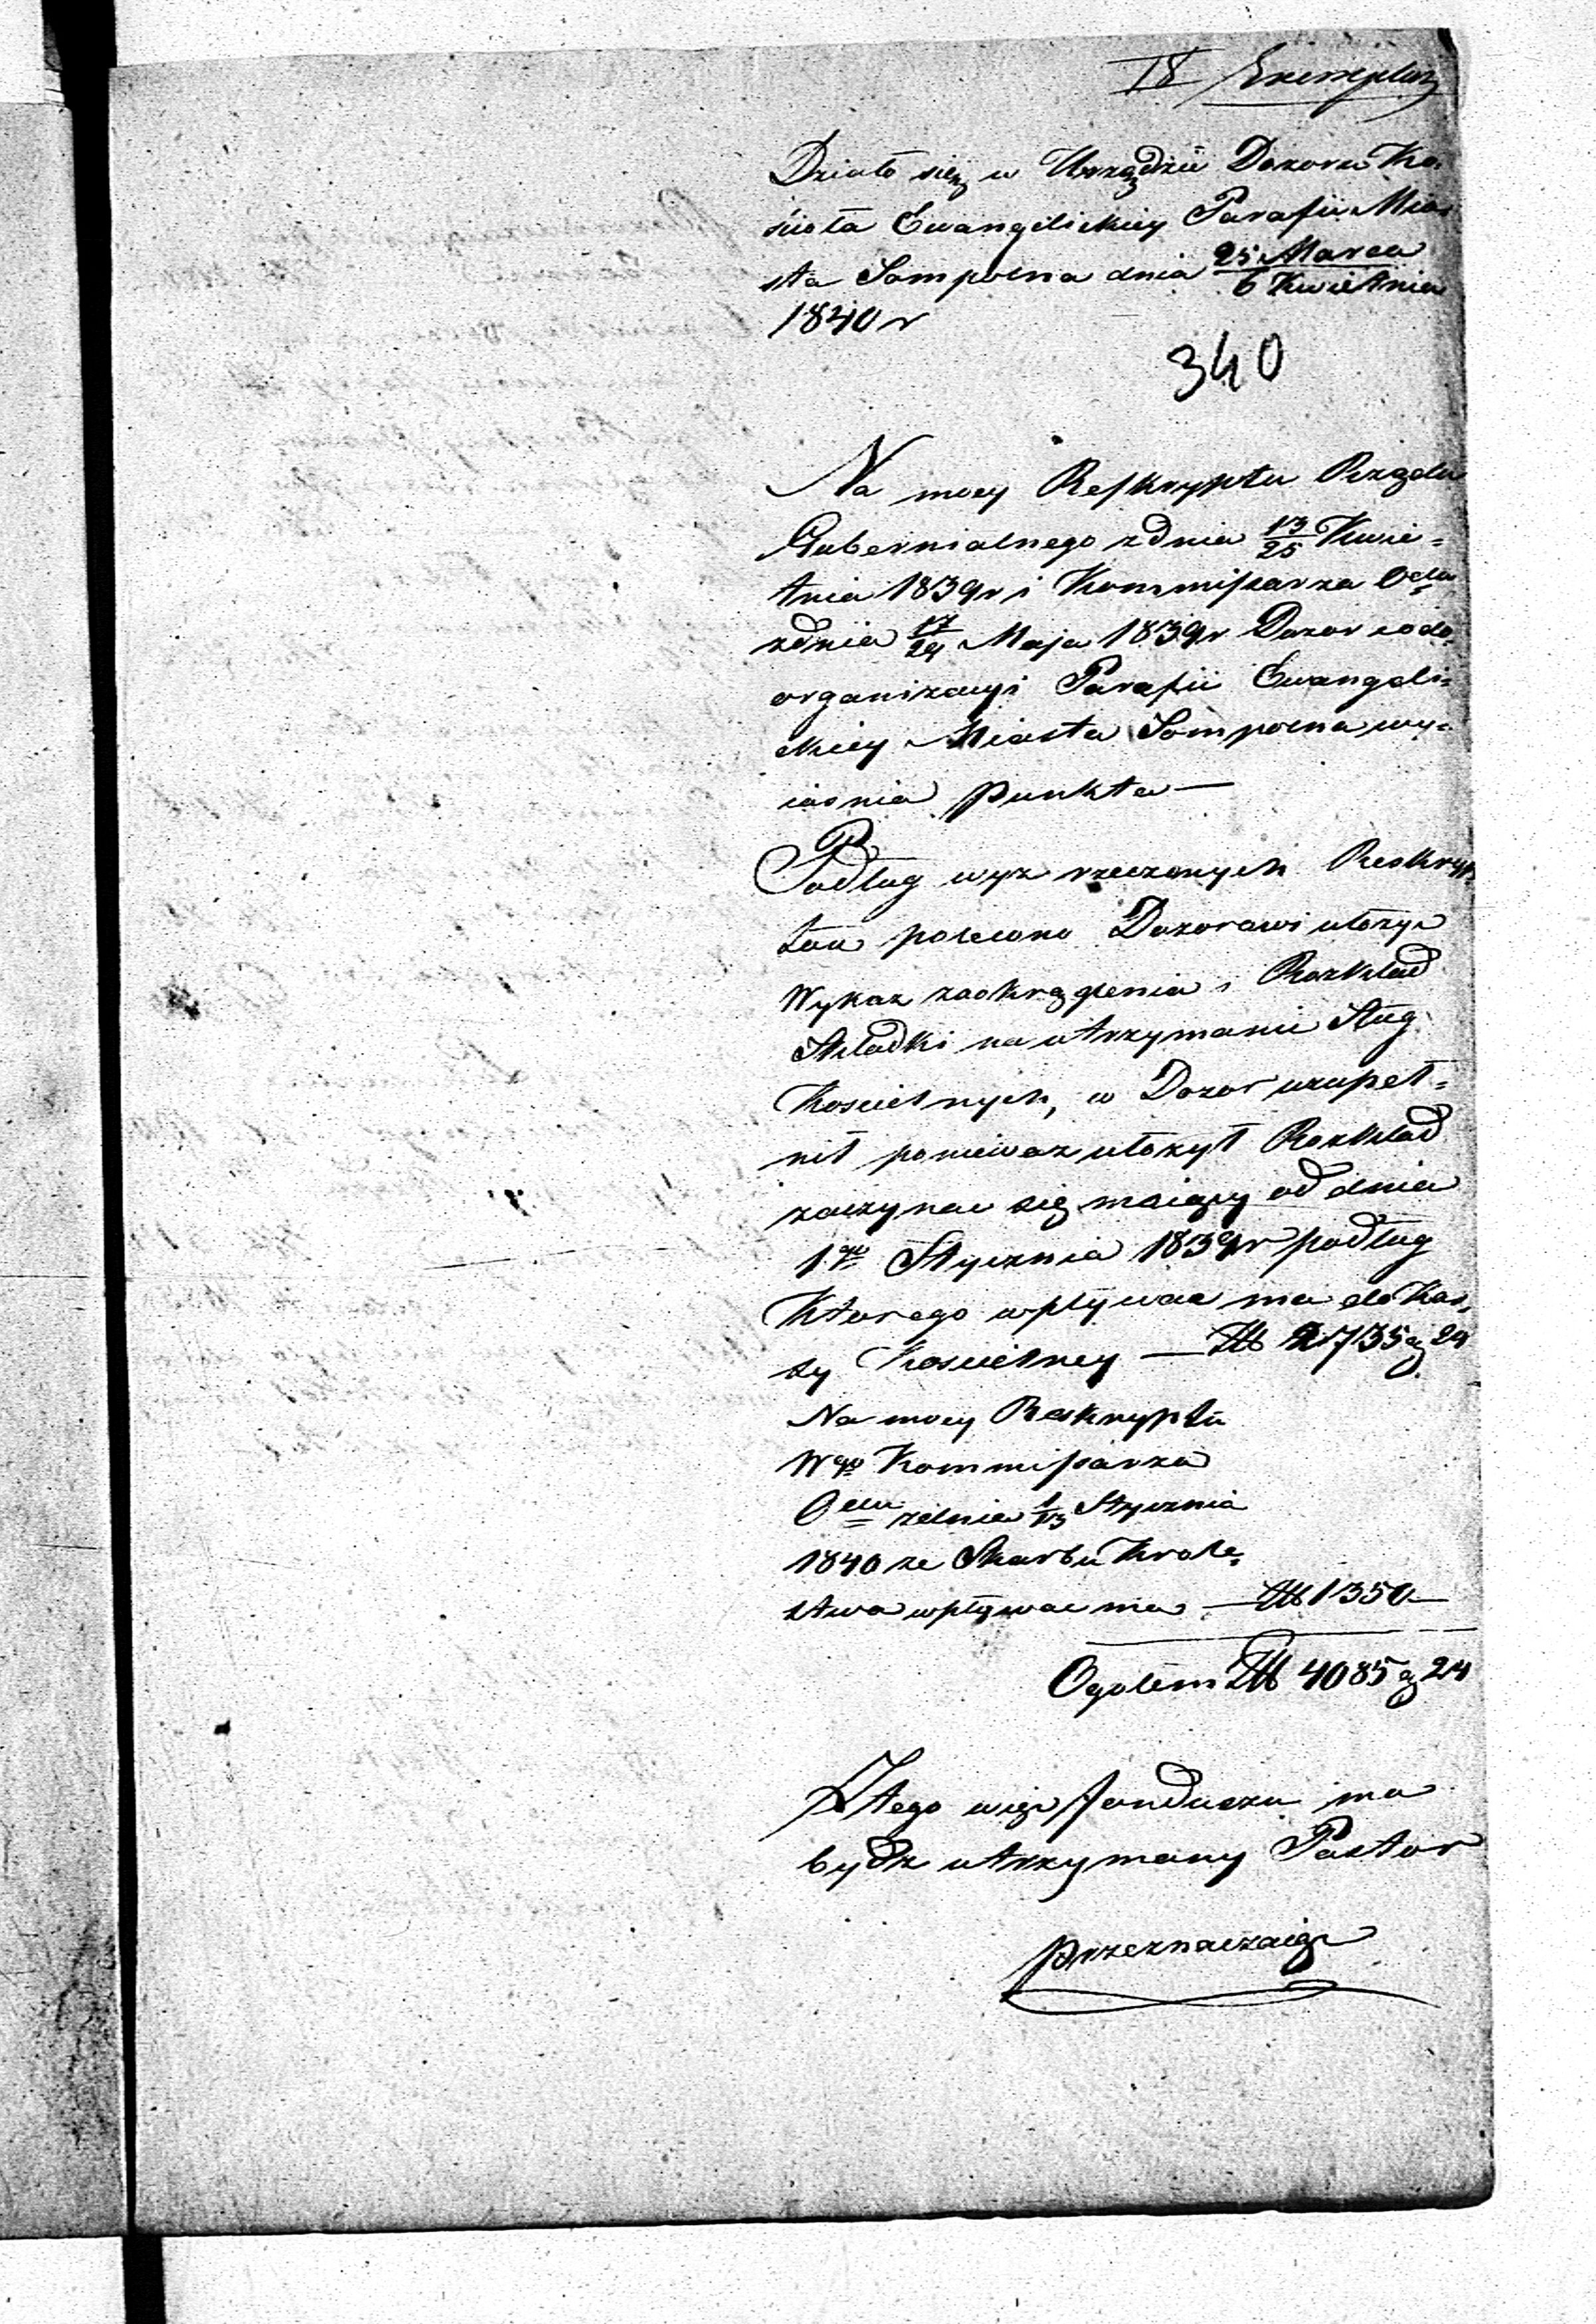 II Exemplarz
Działo się w Urzędzie Dozoru Ko-
ścioła Ewangelickiey Parafii Mia-
sta Sompolna dnia 25 Marca / 6 Kwietnia
1840 r
340
Na mocy Reskryptu Rządu
Gubernialnego z dnia 13/25 Kwie=
tnia 1839 r i Kommissarza
z dnia Maja 1839 r Dozor co do
organizacyi Parafii Ewangeli=
ckiey Miasta Sompolna wy=
iasnia punkta —
Podług wyz rzeczonych Reskryp
tow polecono Dozorowi ułożyc
Wykaz zaokrąglenia i Rozkład
Składki na utrzymanie Sług
Koscielnych, w Dozor uzupeł=
nił poniewaz ułożył Rozkład
zaczynac się maiący od dnia
1go Stycznia 1839 r podług
Ktorego wpływac ma do Kas,
sy Koscielney — Zł 2735 g 24
Na mocy Reskryptu
Wgo Kommissarza
z dnia 1/13 Stycznia
1840 ze Skarbu Krole=
stwa wpływac ma — Zł 1350 —
Ogołem Zł 4085 g 24
Z tego więc funduszu ma
bydz utrzymany Pastor
przeznaczaiąc